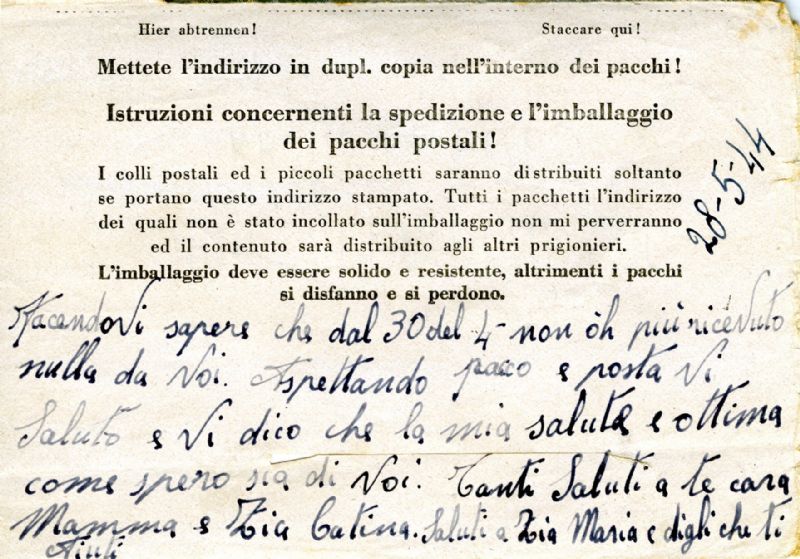 Hier abtrennen! Staccare qui!
Mettete l'indirizzo in dupl. copia nell'interno dei pacchi!
Istruzioni concernenti la spedizione e l'imballaggio
dei pacchi postali!
I colli postali ed i piccoli pacchetti saranno distribuiti soltanto
se portano questo indirizzo stampato. Tutti i pacchetti l'indirizzo
dei quali non è stato incollato sull'imballaggio non mi perverranno
ed il contenuto sarà distribuito agli altri prigionieri.
L'imballaggio deve essere solido e resistente, altrimenti i pacchi
si disfanno e si perdono.
28-5-44
Facendovi sapere che dal 30 del 4- non òh più ricevuto
nulla da Voi. Aspettando pacco e posta Vi
Saluto e Vi dico che la mia salute e ottima
come spero sia di Voi. Tanti Saluti a te cara
Mamma e Zia Catina. Saluti a Zia Maria e digli che ti
Aiuti